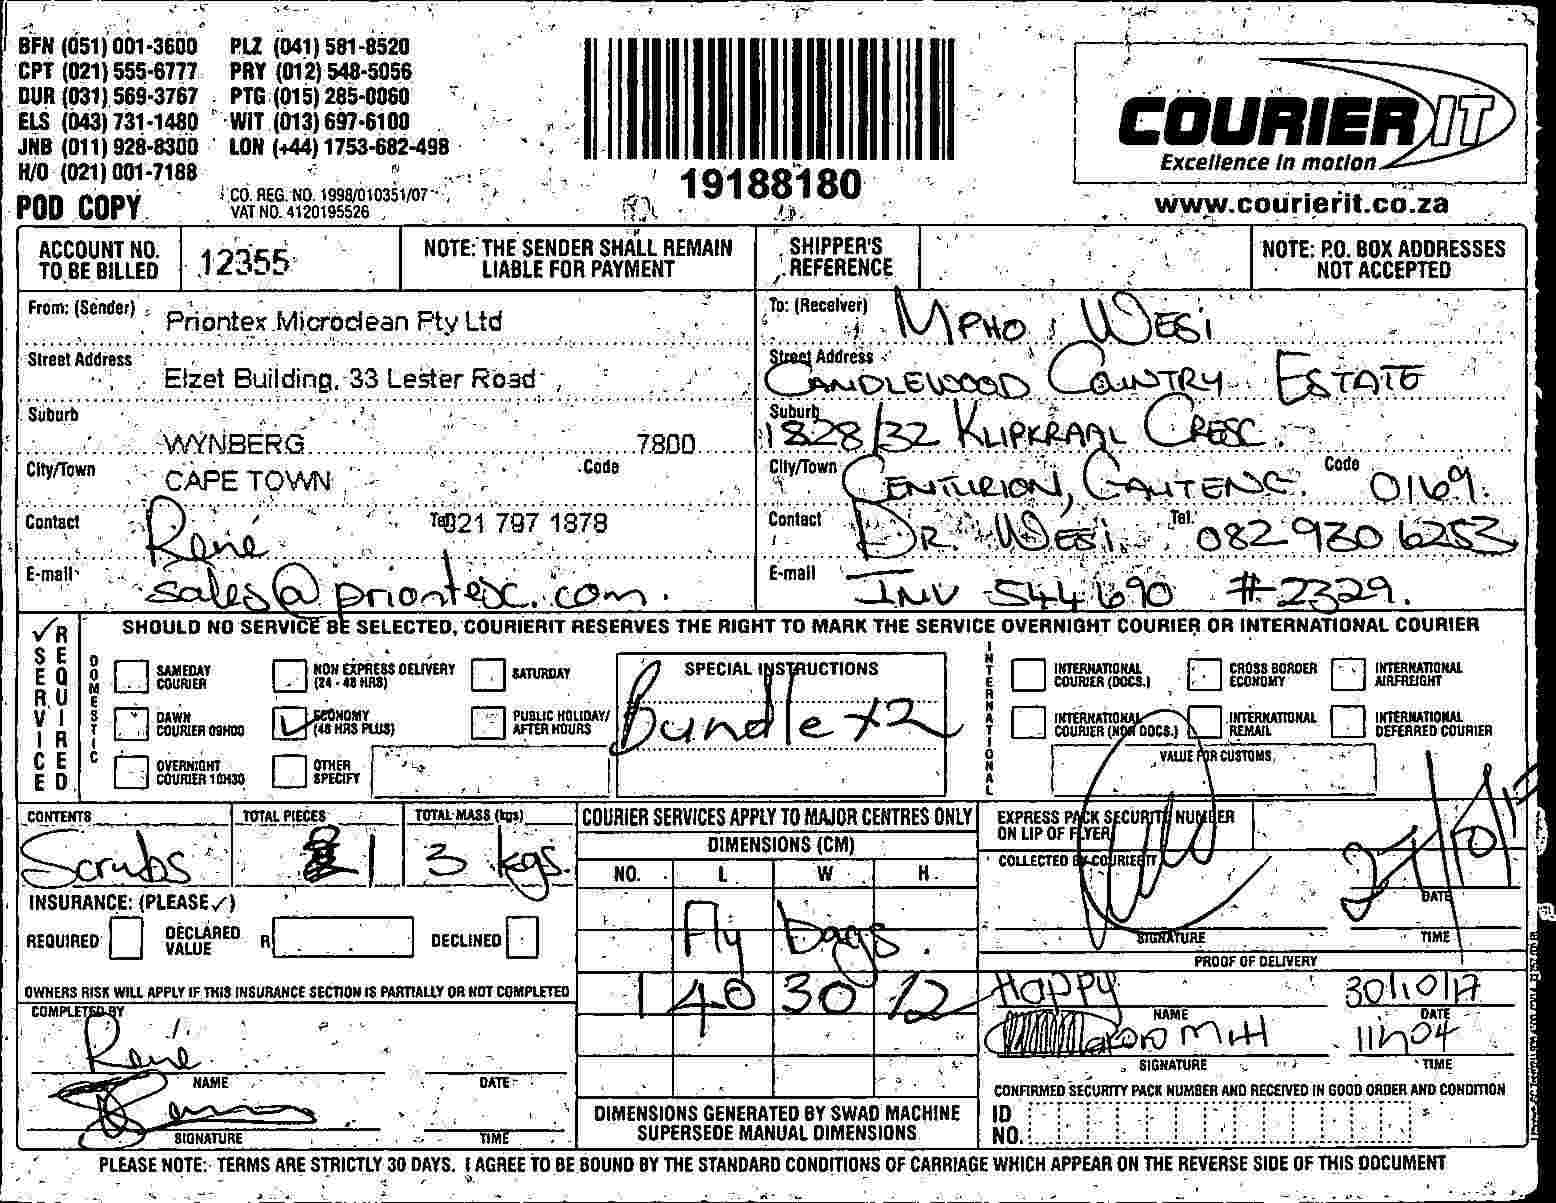 BFN (051) 001-3600 PLZ (041) 581-8520
CPT (021) 555-6777 PRY (012) 548-5056
DUR (031) 569-3767 PTG (015) 285-0060
ELS (043) 731-1480 WIT (013) 697-6100
JNB (011) 928-8300 LON (+44) 1753-682-498
H/O (021) 001-7188
POD COPY
CO. REG. NO. 1998/010351/07
VAT NO. 4120195526
19188180
COURIER IT
Excellence in motion
www.courierit.co.za
ACCOUNT NO. TO BE BILLED 12355
NOTE: THE SENDER SHALL REMAIN LIABLE FOR PAYMENT
SHIPPER'S REFERENCE
NOTE: P.O. BOX ADDRESSES NOT ACCEPTED
From: (Sender) Priontex Microclean Pty Ltd
Street Address Elzet Building, 33 Lester Road
Suburb WYNBERG 7800
City/Town CAPE TOWN Code
Contact René Tel 021 797 1878
E-mail sales@priontex.com.
To: (Receiver) MPHO WESI
Street Address CANDLEWOOD COUNTRY ESTATE
Suburb 1828/32 KLIPKRAAL CRESC
City/Town CENTURION, GAUTENG. Code 0169.
Contact DR. WESI Tel. 082 930 6253
E-mail INV 544690 #2329.
✓ SERVICE REQUIRED
SHOULD NO SERVICE BE SELECTED, COURIERIT RESERVES THE RIGHT TO MARK THE SERVICE OVERNIGHT COURIER OR INTERNATIONAL COURIER
DOMESTIC
SAMEDAY COURIER
NON EXPRESS DELIVERY (24 - 48 HRS)
SATURDAY
DAWN COURIER 09H00
✓ ECONOMY (48 HRS PLUS)
PUBLIC HOLIDAY/ AFTER HOURS
OVERNIGHT COURIER 10H30
OTHER SPECIFY
SPECIAL INSTRUCTIONS
Bundle x2
INTERNATIONAL
INTERNATIONAL COURIER (DOCS.)
CROSS BORDER ECONOMY
INTERNATIONAL AIRFREIGHT
INTERNATIONAL COURIER (NON DOCS.)
INTERNATIONAL REMAIL
INTERNATIONAL DEFERRED COURIER
VALUE FOR CUSTOMS
CONTENTS Scrubs
TOTAL PIECES 1
TOTAL MASS (kgs) 3 kgs.
INSURANCE: (PLEASE ✓)
REQUIRED DECLARED VALUE R DECLINED
OWNERS RISK WILL APPLY IF THIS INSURANCE SECTION IS PARTIALLY OR NOT COMPLETED
COMPLETED BY
René
NAME DATE
SIGNATURE TIME
COURIER SERVICES APPLY TO MAJOR CENTRES ONLY
DIMENSIONS (CM)
NO. L W H
Fly bags.
1 40 30 12
DIMENSIONS GENERATED BY SWAD MACHINE SUPERSEDE MANUAL DIMENSIONS
EXPRESS PACK SECURITY NUMBER ON LIP OF FLYER
COLLECTED BY COURIERIT
27/10/17
DATE
SIGNATURE TIME
PROOF OF DELIVERY
Happy 30/10/17
NAME DATE
11h04
SIGNATURE TIME
CONFIRMED SECURITY PACK NUMBER AND RECEIVED IN GOOD ORDER AND CONDITION
ID NO.
PLEASE NOTE: TERMS ARE STRICTLY 30 DAYS. I AGREE TO BE BOUND BY THE STANDARD CONDITIONS OF CARRIAGE WHICH APPEAR ON THE REVERSE SIDE OF THIS DOCUMENT